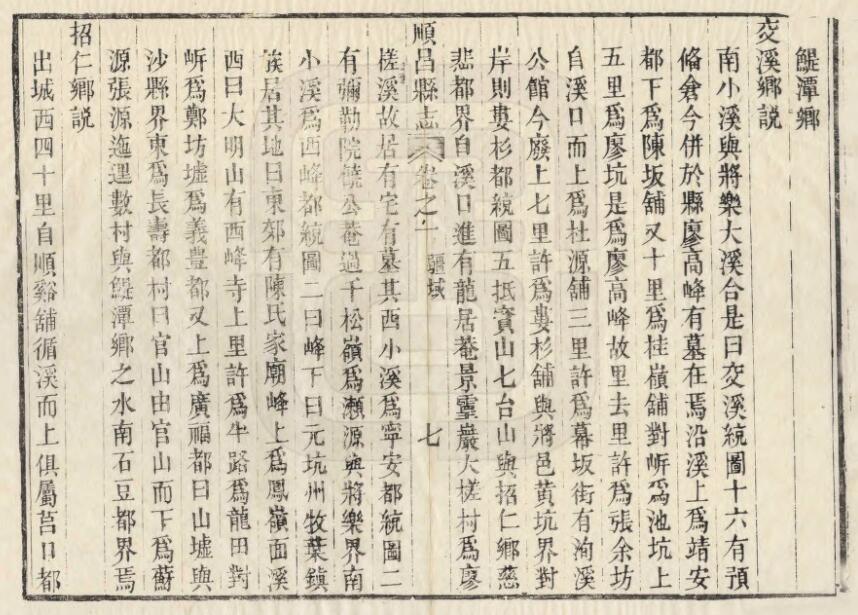 鯷潭鄉
交溪鄉説
南小溪與將樂大溪合是曰交溪統圖十六有預
俻倉今併於縣廖高峰有墓在焉沿溪上爲靖安
都下爲陳坂舖又十里爲桂嶺舖對岍爲池坑上
五里爲廖坑是爲廖高峰故里去里許爲張余坊
自溪口而上爲杜源舖三里許爲幕坂街有洵溪
公館今廢上七里許爲婁杉舖與將邑黃坑界對
岸則婁杉都統圖五抵寳山七台山與招仁鄉慈
悲都界自溪口進有龍居菴景靈巖大槎村爲廖
順昌縣志 卷之一 疆域 七
槎溪故居有宅有墓其西小溪爲寧安都統圖二
有彌勒院 公菴過千松嶺爲瀬源與將樂界南
小溪爲西峰都統圖二曰峰下曰元坑州牧葉鎮
族居其地曰東郊有陳氏家廟峰上爲鳳嶺面溪
西曰大明山有西峰寺上里許爲半路爲龍田對
岍爲鄭坊墟爲義豊都又上爲廣福都曰山墟與
沙縣界東爲長壽都村曰官山由官山而下爲蘇
源張源迤邐數村與鯷潭鄉之水南石豆都界焉
招仁鄉説
出城西四十里自順谿舖循溪而上俱屬莒口都